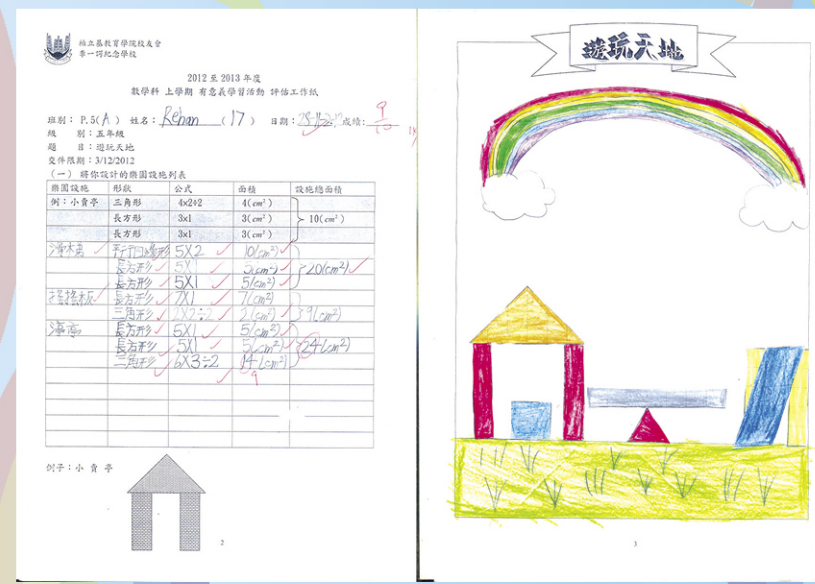 柏立基教育學院校友會
李一諤紀念學校
2012 至 2013 年度
數學科 上學期 有意義學習活動 評估工作紙
班別: P.5(A) 姓名: Rehan (17) 日期: 成績: 9/10
級 別:五年級
題 目:遊玩天地
交件限期:3/12/2012
(一) 將你設計的樂園設施列表
樂園設施 形狀 公式 面積 設施總面積
例:小賣亭 三角形 4x2÷2 4(cm²)
長方形 3x1 3(cm²) 10(cm²)
長方形 3x1 3(cm²)
滑梯 平行四邊形 5X2 10(cm²)
長方形 5X1 5(cm²) 20(cm²)
長方形 5X1 5(cm²)
搖搖板 長方形 7X1 7(cm²)
三角形 2X2÷2 2(cm²) 9(cm²)
涼亭 長方形 5X1 5(cm²)
長方形 5X1 5(cm²) 24(cm²)
三角形 6X3÷2 14(cm²)
9
例子:小 賣 亭
2
遊玩天地
3